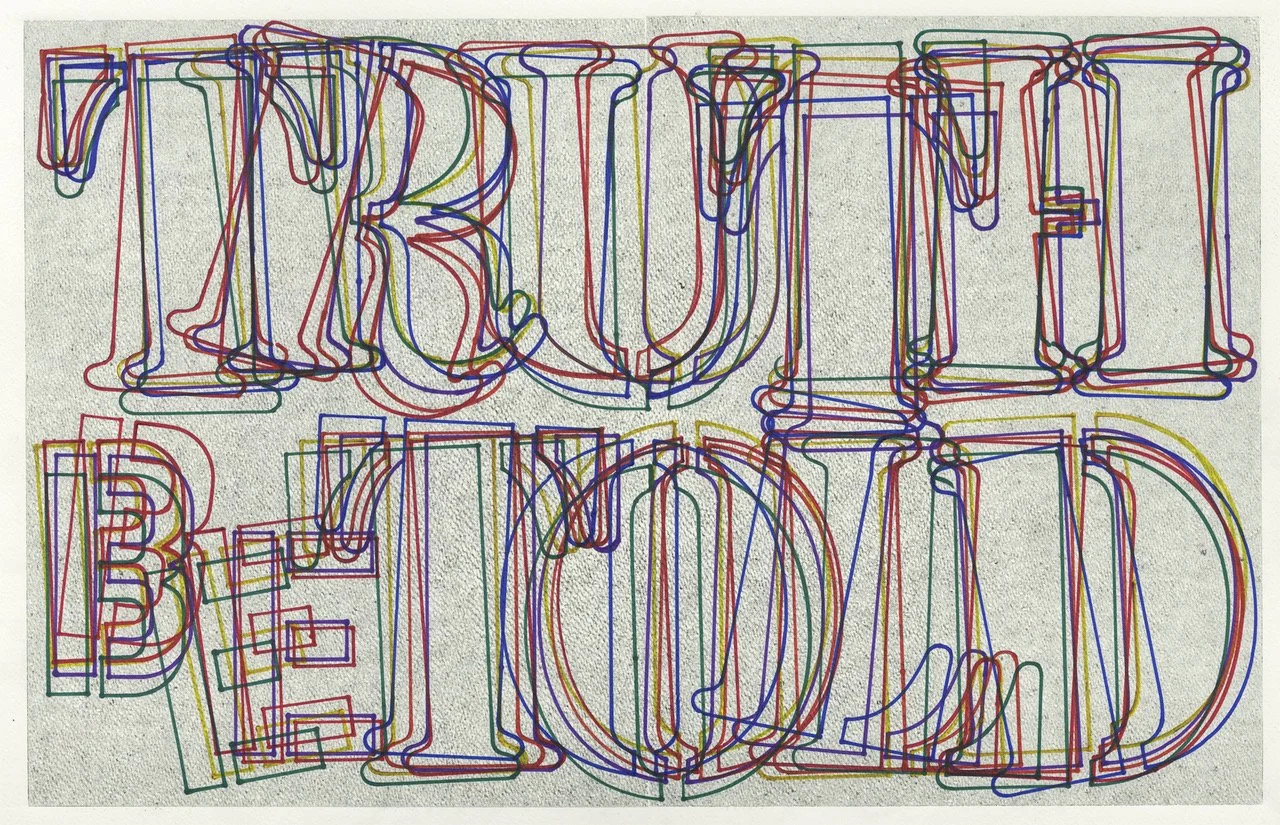 TRUTH
BE TOLD